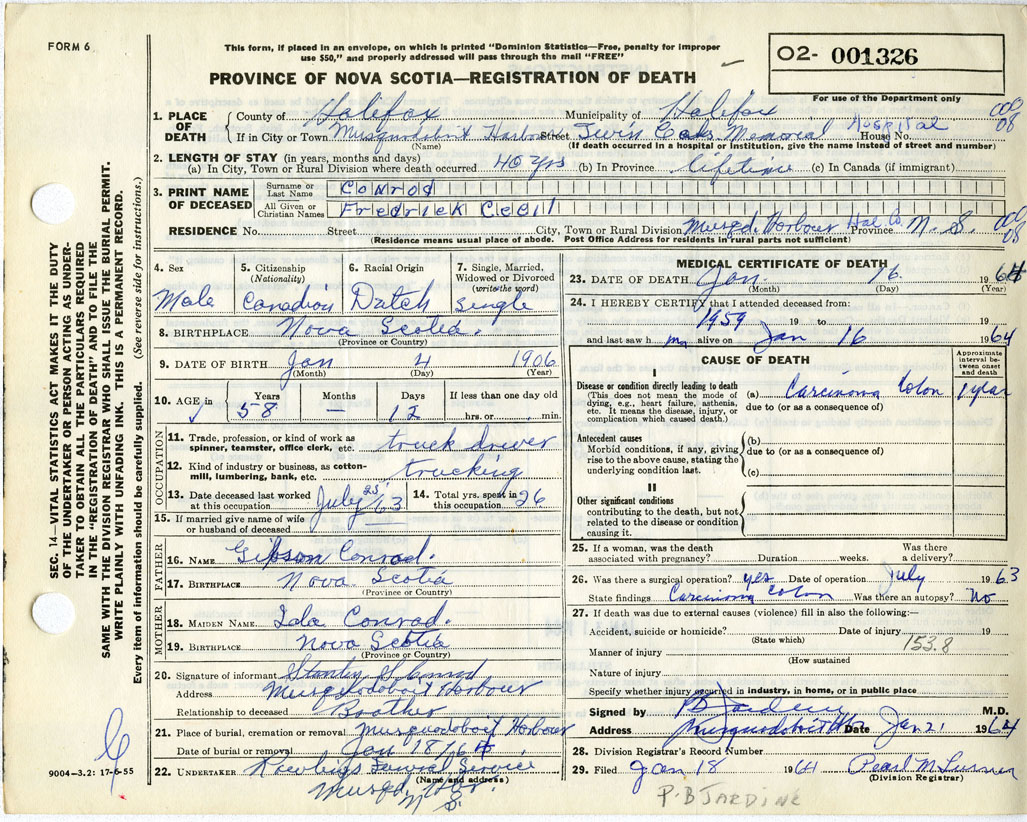 FORM 6
This form, if placed in an envelope, on which is printed "Dominion Statistics—Free, penalty for improper
use $50," and properly addressed will pass through the mail "FREE"
PROVINCE OF NOVA SCOTIA—REGISTRATION OF DEATH
02- 001326
For use of the Department only
1. PLACE OF DEATH
County of Halifax Municipality of Halifax
If in City or Town Musquodoboit Harbour Street Twin Oaks Memorial Hospital House No.
(Name) (If death occurred in a hospital or institution, give the name instead of street and number)
008
2. LENGTH OF STAY (in years, months and days)
(a) In City, Town or Rural Division where death occurred 40 yrs (b) In Province lifetime (c) In Canada (if immigrant)
3. PRINT NAME OF DECEASED
Surname or Last Name Conrod
All Given or Christian Names Fredrick Cecil
RESIDENCE No. Street City, Town or Rural Division Musqd. Harbour Hal. Co. Province N. S.
(Residence means usual place of abode. Post Office Address for residents in rural parts not sufficient)
008
4. Sex Male
5. Citizenship (Nationality) Canadian
6. Racial Origin Dutch
7. Single, Married, Widowed or Divorced (write the word) Single
8. BIRTHPLACE Nova Scotia.
(Province or Country)
9. DATE OF BIRTH Jan 4 1906
(Month) (Day) (Year)
10. AGE in Years Months Days If less than one day old
58 — 12 hrs. or min.
OCCUPATION
11. Trade, profession, or kind of work as spinner, teamster, office clerk, etc. truck driver
12. Kind of industry or business, as cotton-mill, lumbering, bank, etc. trucking
13. Date deceased last worked at this occupation July 25/63
14. Total yrs. spent in this occupation 26
15. If married give name of wife or husband of deceased —
FATHER
16. NAME Gibson Conrad.
17. BIRTHPLACE Nova Scotia
(Province or Country)
MOTHER
18. MAIDEN NAME Ida Conrad.
19. BIRTHPLACE Nova Scotia
(Province or Country)
20. Signature of informant
Address Musquodoboit Harbour
Relationship to deceased Brother
21. Place of burial, cremation or removal Musquodoboit Harbour
Date of burial or removal Jan 18/64
22. UNDERTAKER Funeral Service
(Name and address)
Musqd. Hbr.
N S.
MEDICAL CERTIFICATE OF DEATH
23. DATE OF DEATH Jan. 16 1964
(Month) (Day) (Year)
24. I HEREBY CERTIFY that I attended deceased from:
1959 19 to 19
and last saw h m alive on Jan 16 1964
CAUSE OF DEATH
Approximate interval between onset and death
I
Disease or condition directly leading to death
(This does not mean the mode of dying, e.g., heart failure, asthenia, etc. It means the disease, injury, or complication which caused death.)
(a) Carcinoma Colon 1 year
due to (or as a consequence of)
Antecedent causes
Morbid conditions, if any, giving rise to the above cause, stating the underlying condition last.
(b)
due to (or as a consequence of)
(c)
II
Other significant conditions
contributing to the death, but not related to the disease or condition causing it.
25. If a woman, was the death associated with pregnancy? Duration weeks. Was there a delivery?
26. Was there a surgical operation? yes Date of operation July 1963
State findings Carcinoma Colon Was there an autopsy? No
27. If death was due to external causes (violence) fill in also the following:—
Accident, suicide or homicide? Date of injury 19
(State which)
153.8
Manner of injury
(How sustained
Nature of injury
Specify whether injury occurred in industry, in home, or in public place
Signed by PB Jardine M.D.
Address Musquodoboit Hbr Date Jan 21 1964
28. Division Registrar's Record Number
29. Filed Jan 18 1964 Pearl M.
(Division Registrar)
P.B JARDINE
SEC. 14—VITAL STATISTICS ACT MAKES IT THE DUTY
OF THE UNDERTAKER OR PERSON ACTING AS UNDER-
TAKER TO OBTAIN ALL THE PARTICULARS REQUIRED
IN THE "REGISTRATION OF DEATH" AND TO FILE THE
SAME WITH THE DIVISION REGISTRAR WHO SHALL ISSUE THE BURIAL PERMIT.
WRITE PLAINLY WITH UNFADING INK. THIS IS A PERMANENT RECORD.
Every item of information should be carefully supplied. (See reverse side for instructions.)
9004—3.2: 17-6-55